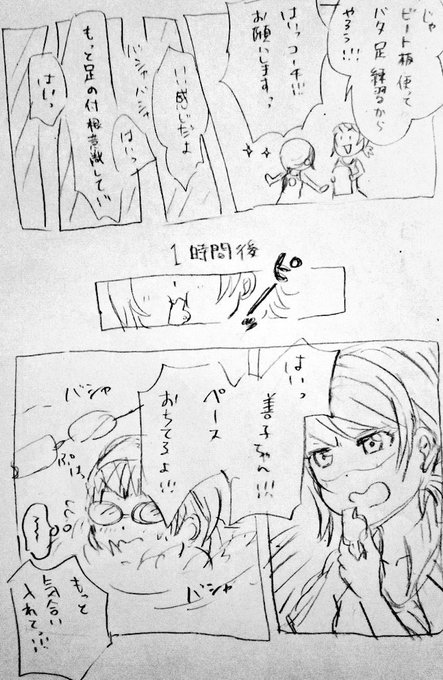 じゃ
ビート板使って
バタ足練習から
やろう!!!
はいっコーチ!!!
お願いしますっ
いい感じだよ
バシャバシャ
はいっ
もっと足の付根意識して!!
はいっ
1時間後
はいっ
善子ちゃん!!!
ペース
おちてるよ!!!
バシャ
ぷはっ
もっと
気合い
入れてっ!!!
バシャ